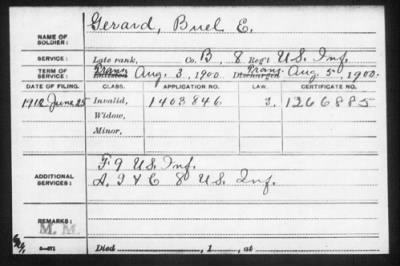 NAME OF SOLDIER: Gerard, Buel E.
SERVICE: Late rank, Co. B, 8 Reg't U.S. Inf.
TERM OF SERVICE: Trans. Enlisted Aug. 3, 1900. Trans. Discharged Aug. 5, 1900.
DATE OF FILING. CLASS. APPLICATION NO. LAW. CERTIFICATE NO.
1912 June 25 Invalid, 1403846 3. 1266885
Widow,
Minor,
ADDITIONAL SERVICES: F. 9 U.S. Inf.
A. I & C 8 U.S. Inf.
REMARKS:
M. M.
Died , 1 , at